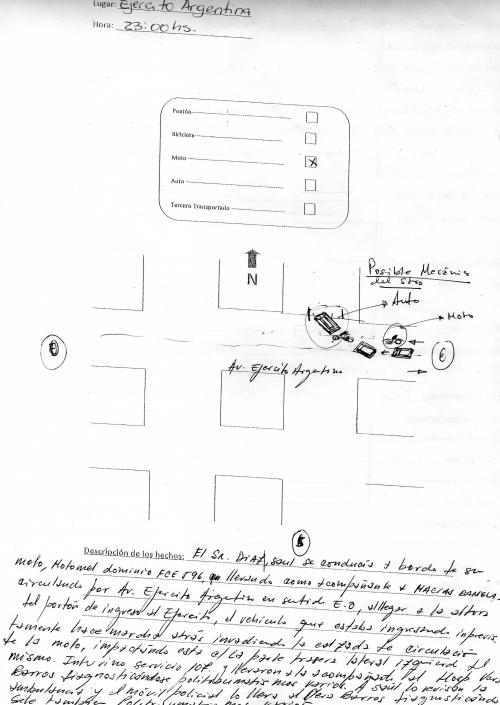 Lugar: Ejercito Argentino
Hora: 23:00hs.
Peatón
Bicicleta
Moto X
Auto
Tercero Transportado
N
Posible Mecánica
del Stro
Auto
Moto
O
E
Av. Ejercito Argentino
S
Descripción de los hechos: El SR. DIAZ, saul se conducia a bordo de su
moto, Motomel dominio FCE 896, llevando como acompañante a MACIAS DANIELA.
circulando por Av. Ejercito Argentino en sentido E-O, al llegar a la altura
del portón de ingreso al Ejercito, el vehiculo que estaba ingresando imprevis
tamente hace marcha atrás invadiendo la calzada de circulación
de la moto, impactando esta c/ la parte trasera lateral izquierda del
mismo. Intervino servicio 107, y llevaron a la acompañante al Hosp
diagnosticandose politraumatismos varios. A saul lo revisan la
ambulancia y el móvil policial lo lleva al diagnosticando
sele tambien